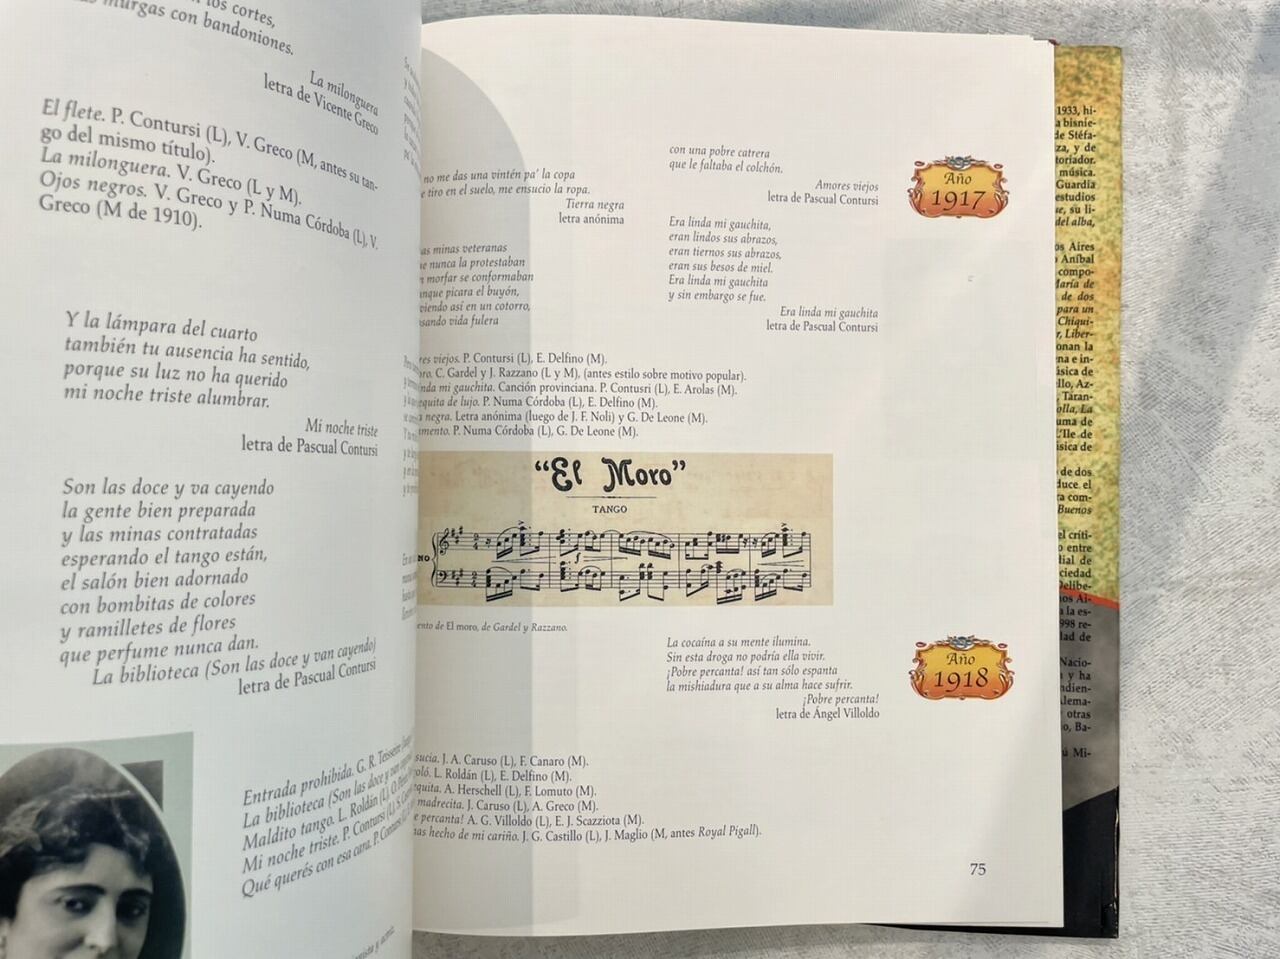 los cortes,
murgas con bandoniones.
La milonguera
letra de Vicente Greco
El flete. P. Contursi (L), V. Greco (M, antes su tan-
go del mismo título).
La milonguera. V. Greco (L y M).
Ojos negros. V. Greco y P. Numa Córdoba (L), V.
Greco (M de 1910).
Y la lámpara del cuarto
también tu ausencia ha sentido,
porque su luz no ha querido
mi noche triste alumbrar.
Mi noche triste
letra de Pascual Contursi
Son las doce y va cayendo
la gente bien preparada
y las minas contratadas
esperando el tango están,
el salón bien adornado
con bombitas de colores
y ramilletes de flores
que perfume nunca dan.
La biblioteca (Son las doce y van cayendo)
letra de Pascual Contursi
Entrada prohibida. G. R. Teisseire
La biblioteca (Son las doce y van
Maldito tango. L. Roldán (L), O.
Mi noche triste. P. Contursi (L), S.
Qué querés con esa cara. P. Contursi
no me das una vintén pa' la copa
e tiro en el suelo, me ensucio la ropa.
Tierra negra
letra anónima
as minas veteranas
e nunca la protestaban
n morfar se conformaban
nque picara el buyón,
viendo así en un cotorro,
sando vida fulera
con una pobre catrera
que le faltaba el colchón.
Amores viejos
letra de Pascual Contursi
Año
1917
Era linda mi gauchita,
eran lindos sus abrazos,
eran tiernos sus abrazos,
eran sus besos de miel.
Era linda mi gauchita
y sin embargo se fue.
Era linda mi gauchita
letra de Pascual Contursi
res viejos. P. Contursi (L), E. Delfino (M).
ro. C. Gardel y J. Razzano (L y M), (antes estilo sobre motivo popular).
inda mi gauchita. Canción provinciana. P. Contusri (L), E. Arolas (M).
quita de lujo. P. Numa Córdoba (L), E. Delfino (M).
a negra. Letra anónima (luego de J. F. Noli) y G. De Leone (M).
mento. P. Numa Córdoba (L), G. De Leone (M).
"El Moro"
TANGO
NO
ento de El moro, de Gardel y Razzano.
La cocaína a su mente ilumina.
Sin esta droga no podría ella vivir.
¡Pobre percanta! así tan sólo espanta
la mishiadura que a su alma hace sufrir.
¡Pobre percanta!
letra de Ángel Villoldo
Año
1918
sucia. J. A. Caruso (L), F. Canaro (M).
oló. L. Roldán (L), E. Delfino (M).
quita. A. Herschell (L), F. Lomuto (M).
madrecita. J. Caruso (L), A. Greco (M).
e percanta! A. G. Villoldo (L), E. J. Scazziota (M).
as hecho de mi cariño. J. G. Castillo (L), J. Maglio (M, antes Royal Pigall).
75
1933, hi-
a bisnie-
de Stéfa-
za, y de
toriador.
música.
Guardia
estudios
ue, su li-
del alba,
os Aires
o Aníbal
compo-
María de
de dos
para un
Chiqui-
r, Liber-
onan la
na e in-
úsica de
llo, Az-
Taran-
olla, La
uma de
L'Ile de
úsica de
de dos
duce el
ra com-
Buenos
el críti-
o entre
dial de
ciedad
Delibe-
nos Ai-
a la es-
998 re-
dad de
Nacio-
y ha
ndien-
Alema-
otras
o, Ba-
ú Mi-